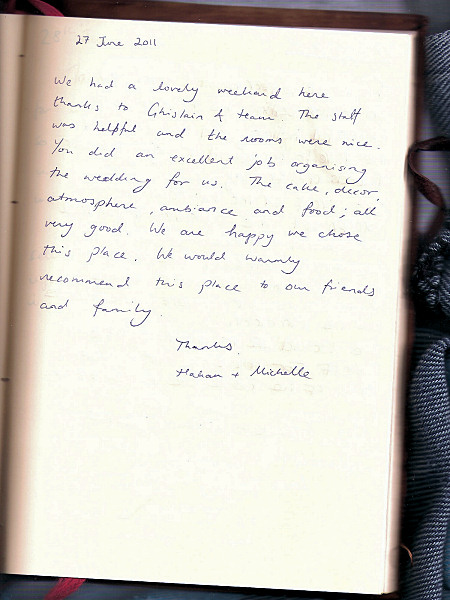 27 June 2011
We had a lovely weekend here
thanks to Ghislain & team. The staff
was helpful and the rooms were nice.
You did an excellent job organising
the wedding for us. The cake, decor,
atmosphere, ambiance and food; all
very good. We are happy we chose
this place. We would warmly
recommend this place to our friends
and family.
Thanks.
+ Michelle